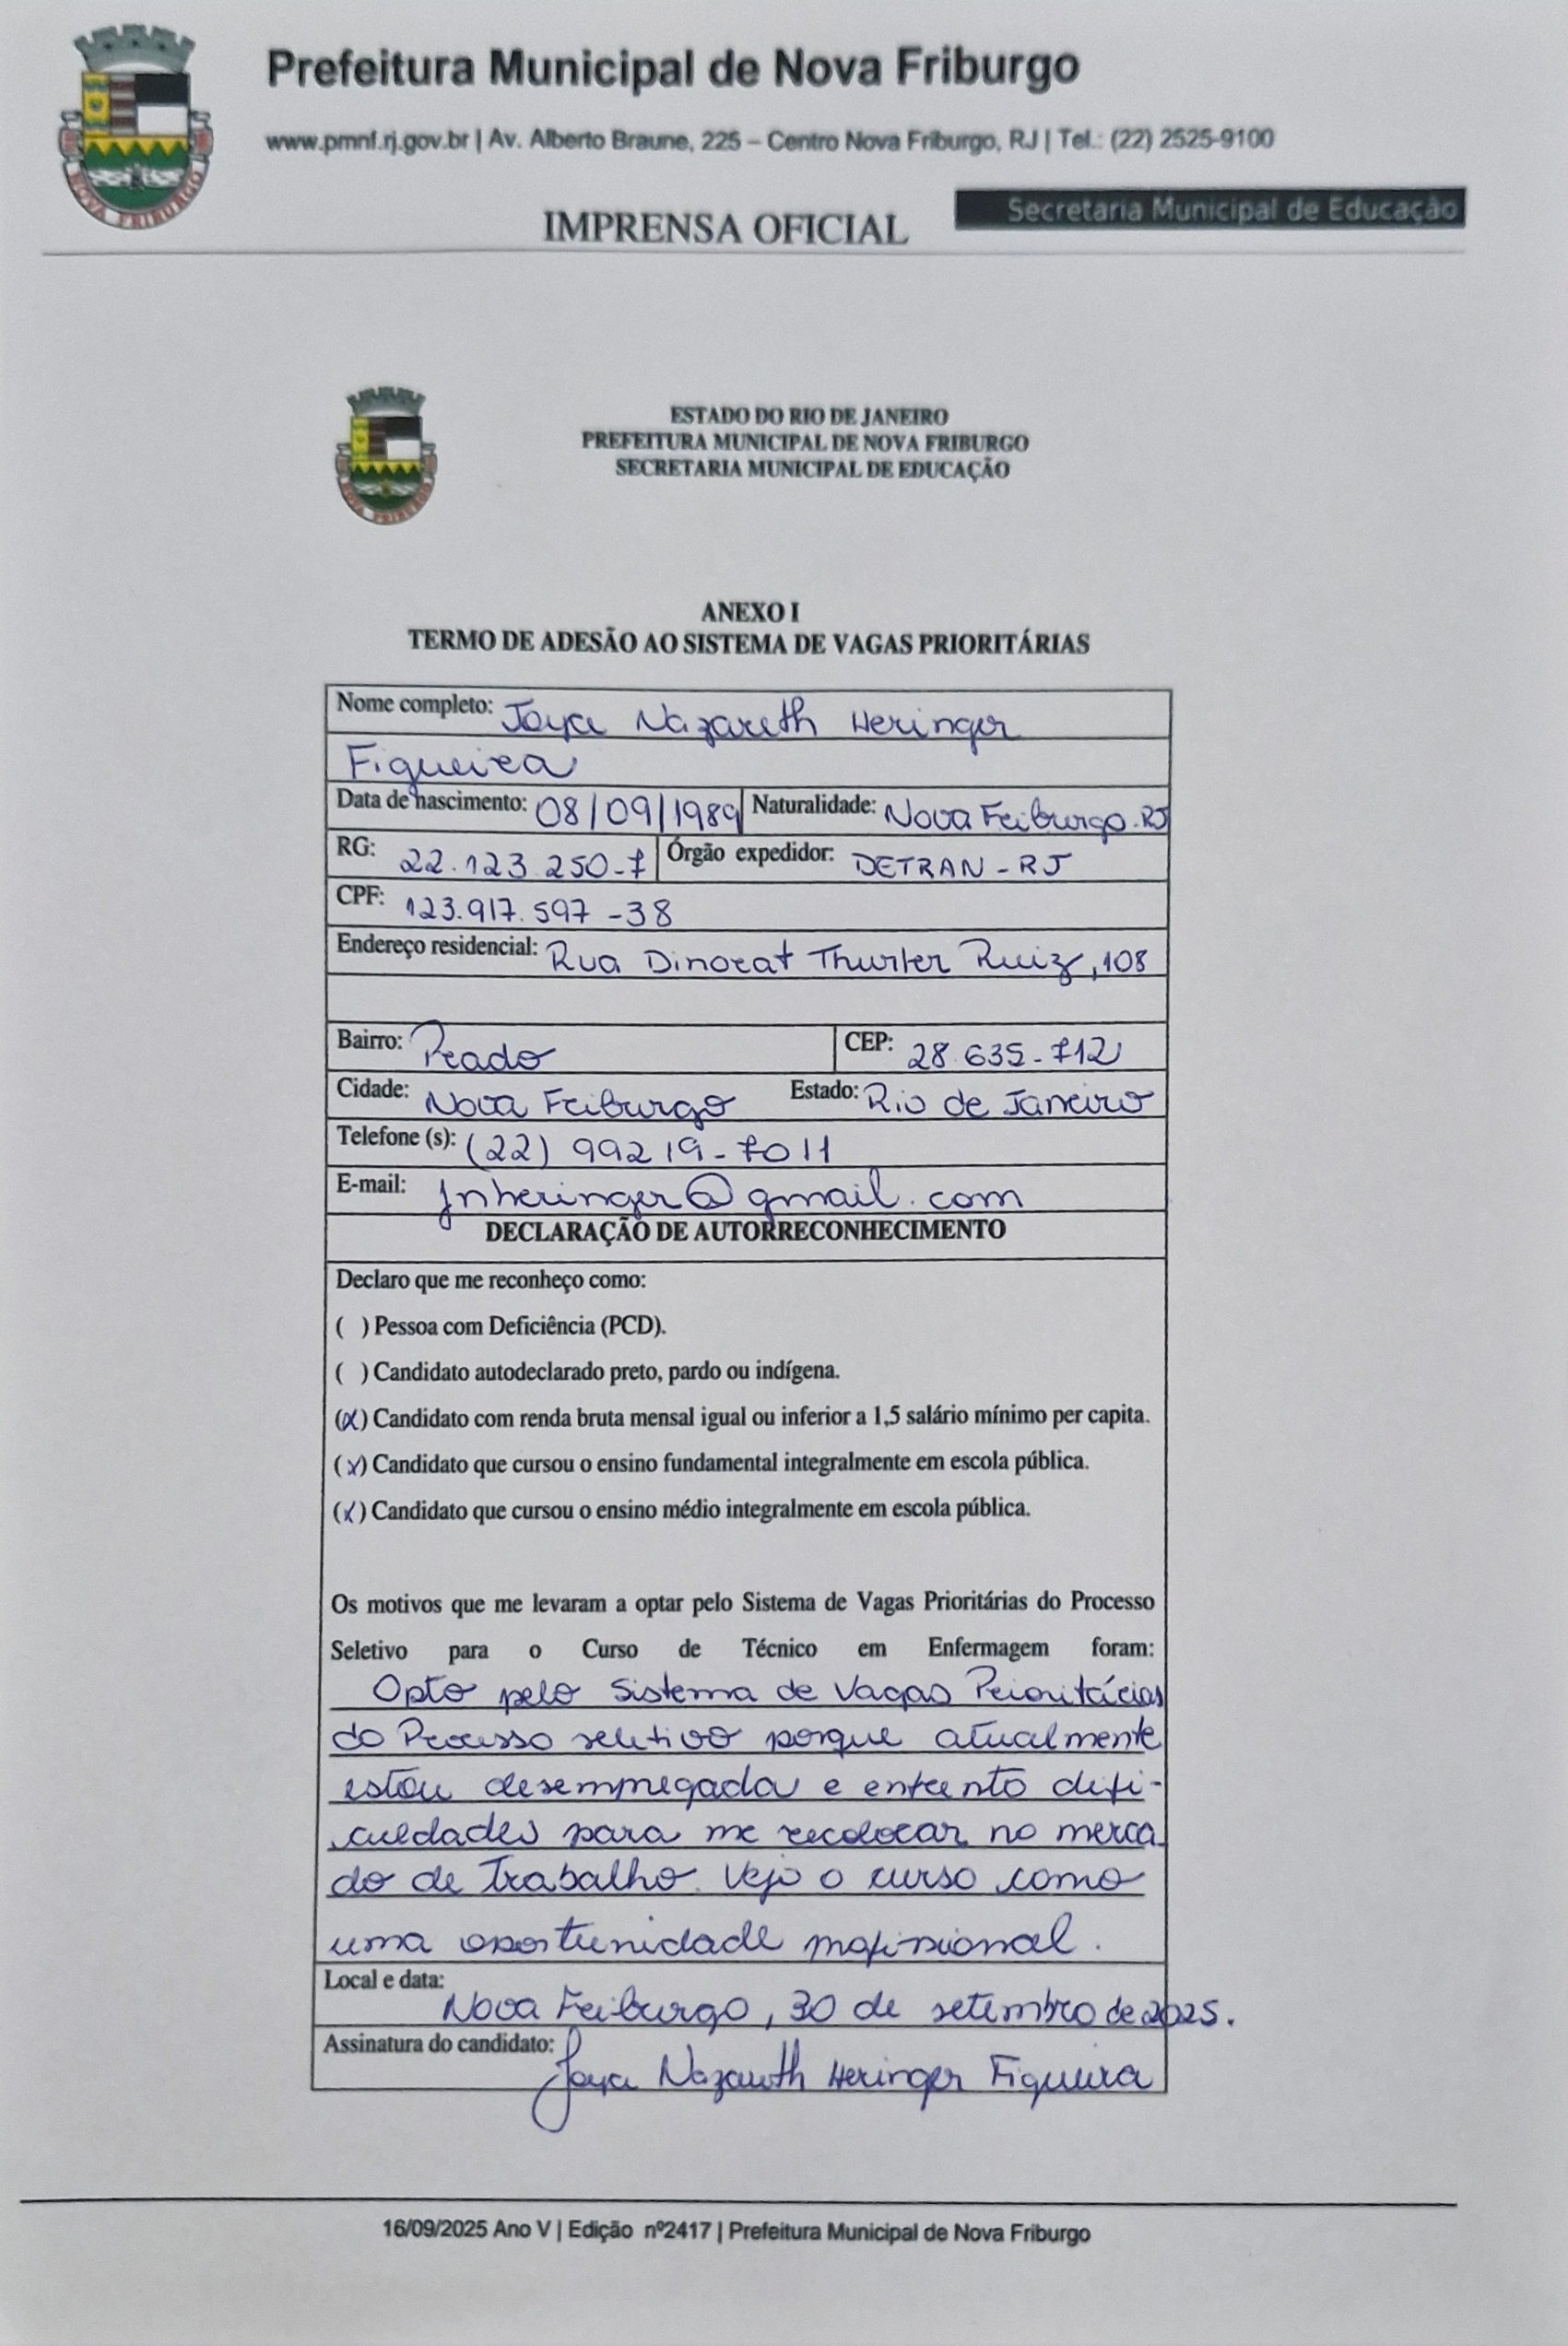 Prefeitura Municipal de Nova Friburgo
www.pmnf.rj.gov.br | Av. Alberto Braune, 225 – Centro Nova Friburgo, RJ | Tel.: (22) 2525-9100
Secretaria Municipal de Educação
IMPRENSA OFICIAL
NOVA FRIBURGO
ESTADO DO RIO DE JANEIRO
PREFEITURA MUNICIPAL DE NOVA FRIBURGO
SECRETARIA MUNICIPAL DE EDUCAÇÃO
NOVA FRIBURGO
ANEXO I
TERMO DE ADESÃO AO SISTEMA DE VAGAS PRIORITÁRIAS
Nome completo: Joyce Nazareth Heringer
Figueira
Data de nascimento: 08/09/1989 Naturalidade: Nova Friburgo-RJ
RG: 22.123.250-7 Órgão expedidor: DETRAN-RJ
CPF: 123.917.597-38
Endereço residencial: Rua Dinorat Thurler Ruiz, 108
Bairro: Prado CEP: 28.635-712
Cidade: Nova Friburgo Estado: Rio de Janeiro
Telefone (s): (22) 99219-7011
E-mail: jnheringer@gmail.com
DECLARAÇÃO DE AUTORRECONHECIMENTO
Declaro que me reconheço como:
( ) Pessoa com Deficiência (PCD).
( ) Candidato autodeclarado preto, pardo ou indígena.
(x) Candidato com renda bruta mensal igual ou inferior a 1,5 salário mínimo per capita.
(x) Candidato que cursou o ensino fundamental integralmente em escola pública.
(x) Candidato que cursou o ensino médio integralmente em escola pública.
Os motivos que me levaram a optar pelo Sistema de Vagas Prioritárias do Processo
Seletivo para o Curso de Técnico em Enfermagem foram:
Opto pelo Sistema de Vagas Prioritárias
do Processo seletivo porque atualmente
estou desempregada e enfrento difi-
culdades para me recolocar no merca-
do de Trabalho. Vejo o curso como
uma oportunidade profissional.
Local e data:
Nova Friburgo, 30 de setembro de 2025.
Assinatura do candidato: Joyce Nazareth Heringer Figueira
16/09/2025 Ano V | Edição nº2417 | Prefeitura Municipal de Nova Friburgo